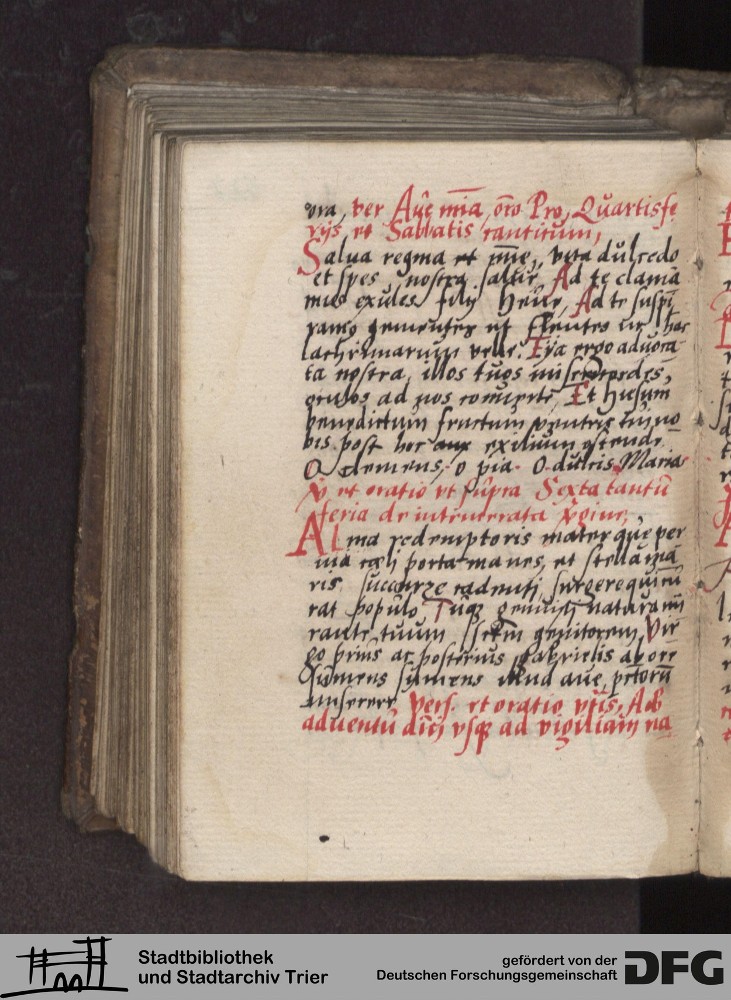 ora, ver Aue mīa, orō Pro, Quartisfe
rijs et Sabbatis cantitum,
Salua regina et mīe, vita dulcedo
et spes nostra saltur, Ad te clamā
mus exules filij Heue, Ad te suspi
ramo gementes et flentes in hac
lachrimarum valle. Eya ergo aduoca
ta nostra, illos tuos misericordes,
oculos ad nos conuerte, Et Hiesum
benedictum fructum ventris tui no
bis post hoc exilium ostende.
O clemens, o pia. O dulcis Maria
v et oratio vt supra Sexta tantū
feria de intemerata vgine,
Alma redemptoris mater que per
uia celi porta manes, et stella ma
ris, succurre cadenti surgere qui cu
rat populo Tu que genuisti natura mi
rante tuum sctm genitorem, Vir
go prius ac posterius gabrielis ab ore
Sumens sumens illud aue, pctorū
miserere vers. et oratio vtis, Ab
aduentū dīci vsq ad vigiliam na
Stadtbibliothek
und Stadtarchiv Trier
gefördert von der
Deutschen Forschungsgemeinschaft
DFG